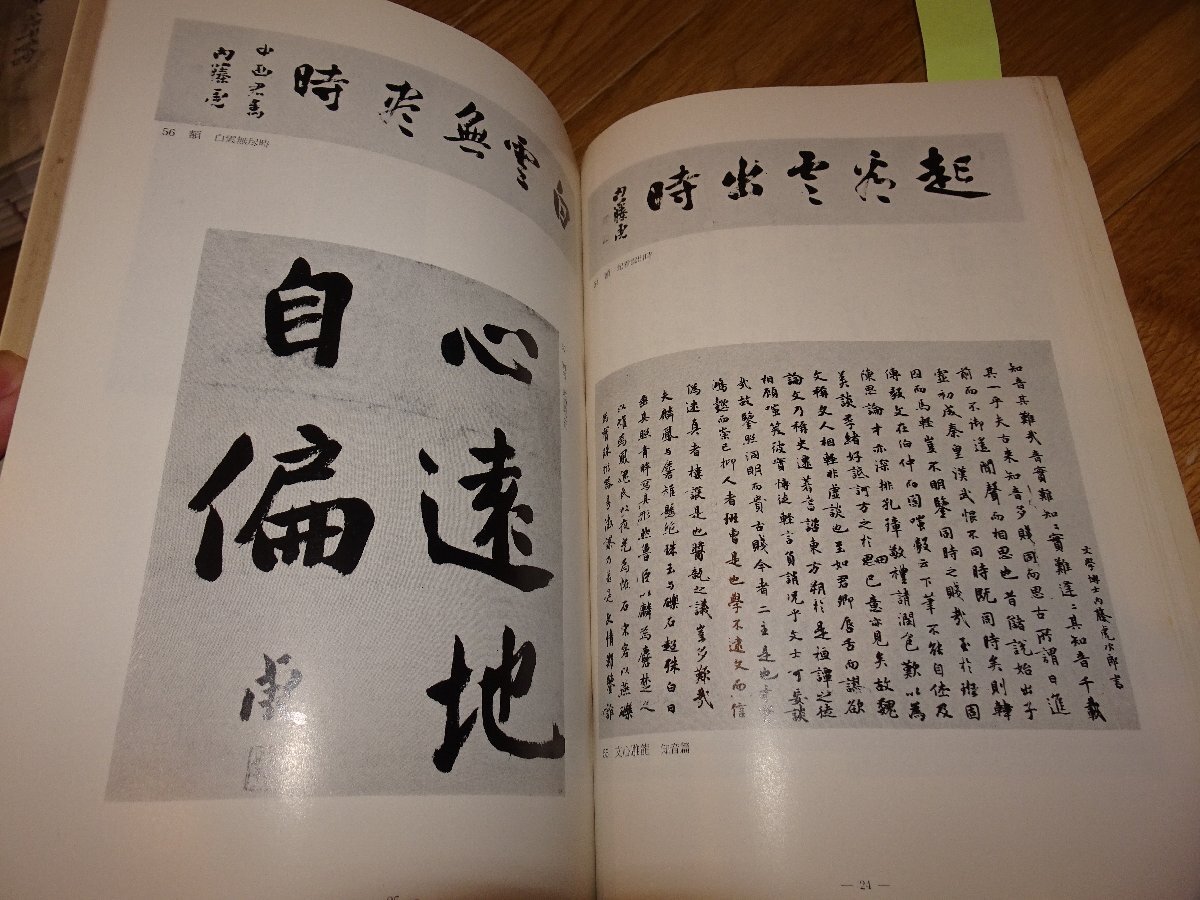 起看雲出時
内藤虎
額 起看雲出時
文學博士内藤虎次郎書
知音其難哉音實難知〻實難逢〻其知音千載
其一乎夫古來知音多賤同而思古所謂日進
前而不御遙聞聲而相思也昔儲說始出子
虛初成秦皇漢武恨不同時既同時矣則韓
囚而馬輕豈不明鑒同時之賤哉至於班固
傅毅文在伯仲而固嗤毅云下筆不能自休及
陳思論才亦深排孔璋敬禮請潤色歎以為
美談季緒好詆訶方之於田巴意亦見矣故魏
文稱文人相輕非虛談也至如君卿脣舌而謬欲
論文乃稱史遷著書諮東方朔於是桓譚之徒
相顧嗤笑彼實博徒輕言負誚況乎文士可妄談
哉故鑒照洞明而貴古賤今者二主是也才實
鴻懿而崇己抑人者班曹是也學不逮文而信
偽迷真者樓護是也醬瓿之議豈多歎哉
夫麟鳳與麏雉懸絕珠玉與礫石超殊白日
垂其照青眸寫其形然魯臣以麟為麏楚人
以雉為鳳魏民以夜光為怪石宋客以燕礫
為寶珠形器易徵謬乃若是文情難鑒誰
55 文心雕龍 知音篇
— 24 —
白雲無尽時
内藤虎
56 額 白雲無尽時
心遠地
自偏
虎